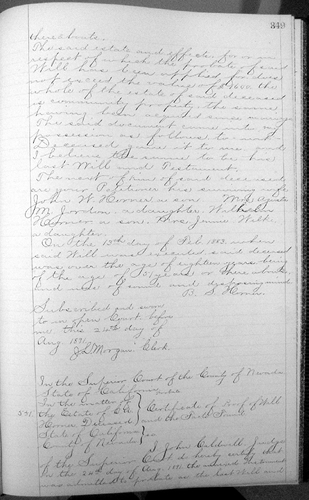 349
thereabouts.
The said estate and effects for or in
respect of which the probate of said
Will has been applied for does
not exceed the value of $1600. the
whole of the estate of said deceased
is community property the same
having been acquired since marriage
The said
possession as follows to wit
Deceased gave it to me and
I believe the same to be his
last Will and Testament.
The next of kin of said deceased
are your Petitioner his surviving wife
John W. Horner a son Mrs
M. Jordan a daughter
Horner a son. Mrs Jennie Walk
a daughter.
On the 13th day of Feb 1883 when
said Will was executed said deceased
was over the age of eighteen years being
of the age of 51 years or there abouts
and was of sound and disposing mind
B. S. Horner
Subscribed and sworn
to in open Court before
me this 24th day of
Aug 1891
J L Morgan Clerk
In the Superior Court of the County of Nevada
State of California
In the Matter of
the Estate of
Horner Deceased
Certificate of Proof of Will
and the Facts Found
571.
State of California
County of Nevada ss
I John Caldwell Judge
of the Superior Court do hereby certify that
on the 24th day of Aug 1891 the annexed Instrument
was admitted to probate as the last Will and